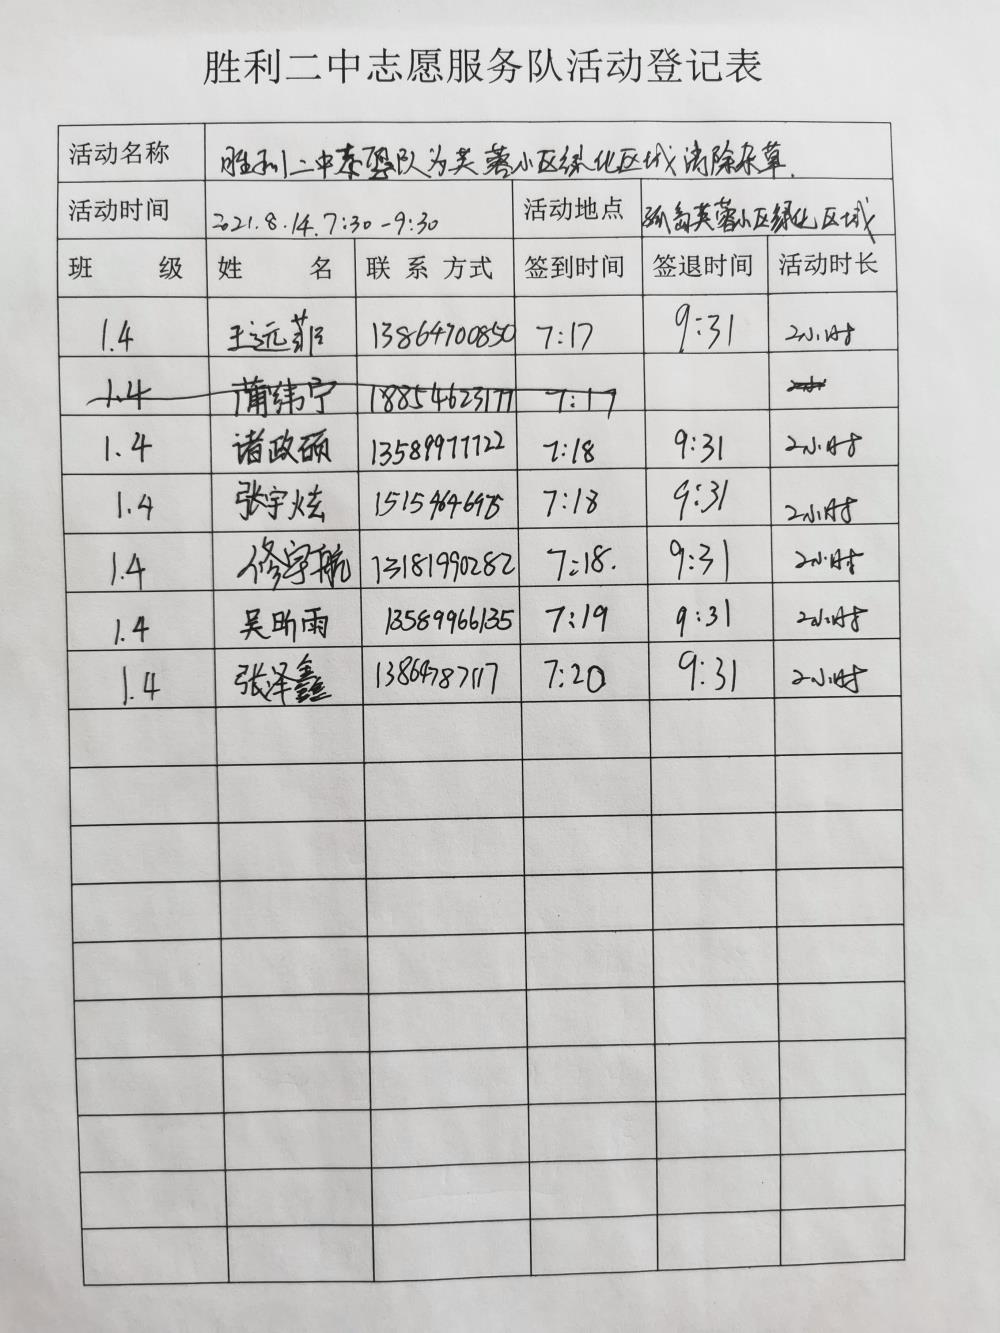 胜利二中志愿服务队活动登记表
活动名称 胜利二中 队为芙蓉小区绿化区域清除杂草.
活动时间 2021.8.14.7:30-9:30 活动地点 孤岛芙蓉小区绿化区域
班 级 姓 名 联系方式 签到时间 签退时间 活动时长
1.4 王远菲 13864700850 7:17 9:31 2小时
1.4 蒲纬宁 18854623177 7:17
1.4 诸政硕 13589977722 7:18 9:31 2小时
1.4 张宇炫 7:18 9:31 2小时
1.4 修宇航 13181990282 7:18. 9:31 2小时
1.4 吴昕雨 13589966135 7:19 9:31 2小时
1.4 张泽鑫 13864787117 7:20 9:31 2小时